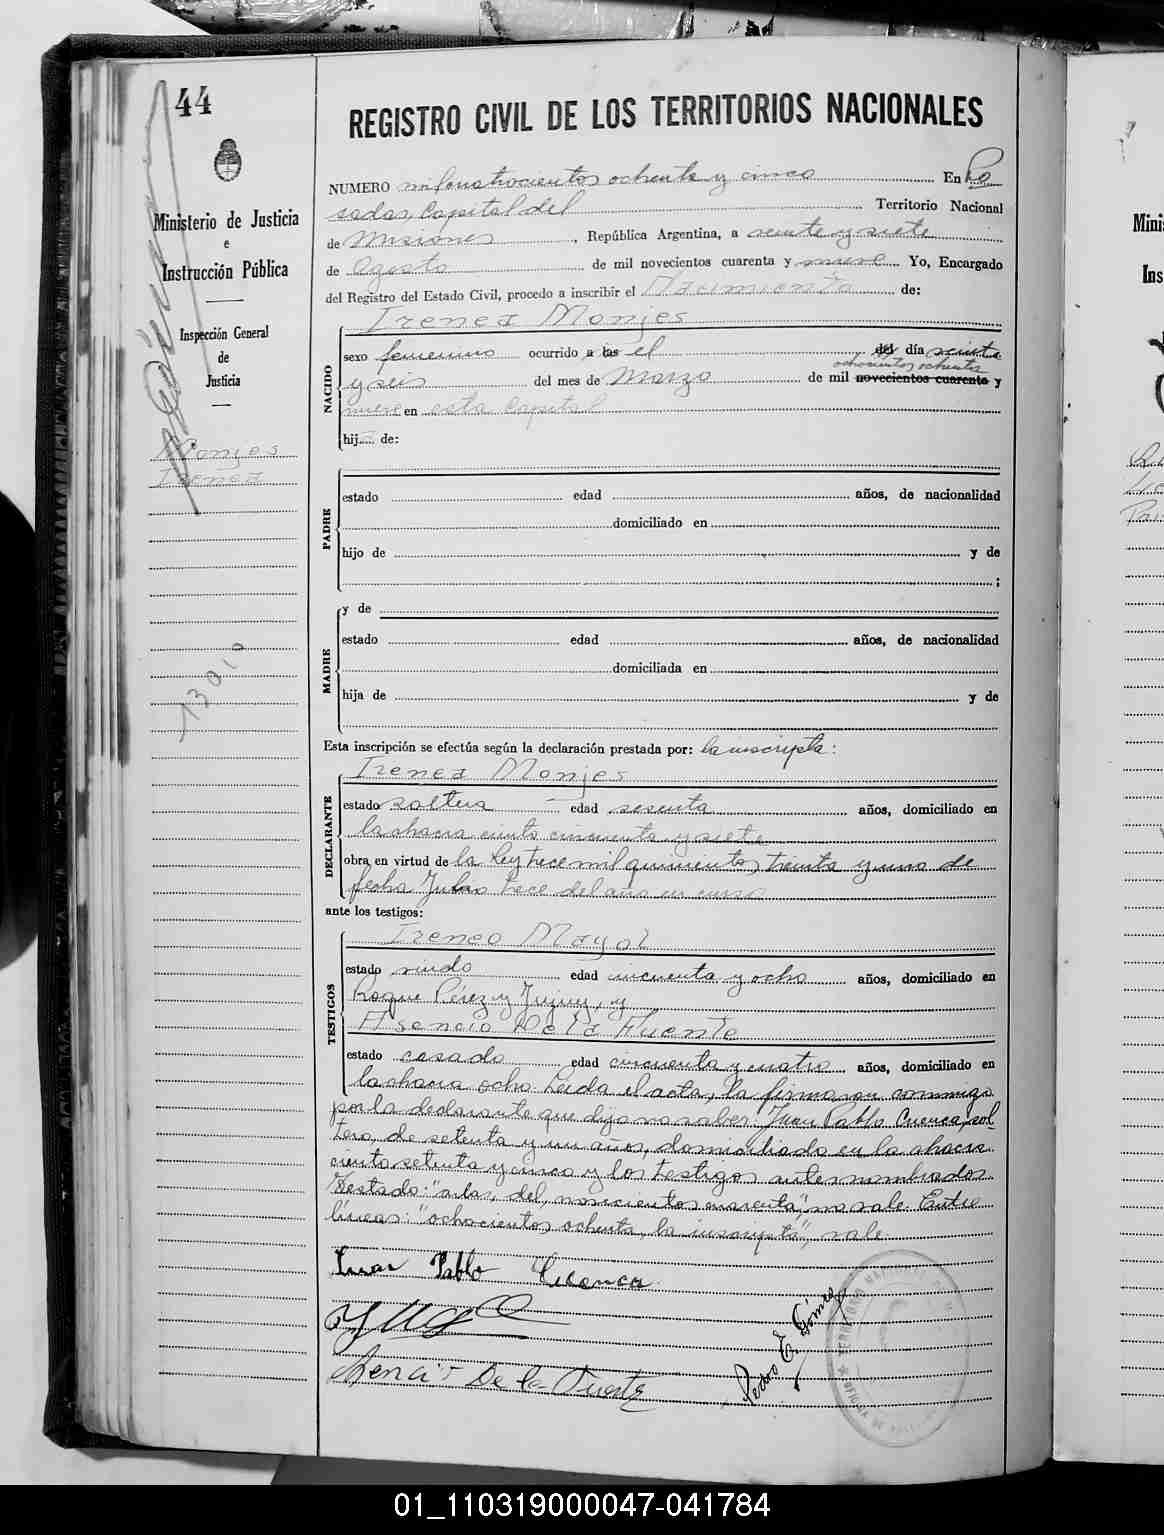 44
Ministerio de Justicia
e
Instrucción Pública
Inspección General
de
Justicia
Monjes
Irenea
13010
REGISTRO CIVIL DE LOS TERRITORIOS NACIONALES
NUMERO mil cuatrocientos ochenta y cinco En Po
sadas, Capital del Territorio Nacional
de Misiones, República Argentina, a veinte y siete
de Agosto de mil novecientos cuarenta y nueve Yo, Encargado
del Registro del Estado Civil, procedo a inscribir el Nacimiento de:
NACIDO
Irenea Monjes
sexo femenino ocurrido a las el del día veinte
ochocientos ochenta
y seis del mes de Marzo de mil novecientos cuarenta y
nueve en esta Capital
hij de:
PADRE
estado edad años, de nacionalidad
domiciliado en
hijo de y de
;
MADRE
y de
estado edad años, de nacionalidad
domiciliada en
hija de y de
Esta inscripción se efectúa según la declaración prestada por: la inscripta:
DECLARANTE
Irenea Monjes
estado soltera edad sesenta años, domiciliado en
la chacra ciento cincuenta y siete
obra en virtud de la Ley trece mil quinientos treinta y uno de
fecha Julio trece del año en curso
ante los testigos:
TESTIGOS
Ireneo Mayol
estado viudo edad cincuenta y ocho años, domiciliado en
Roque Pérez y Jujuy, y
Asencio De la Fuente
estado casado edad cincuenta y cuatro años, domiciliado en
la chacra ocho. Leida el acta, la firmaron conmigo
por la declarante que dijo no saber Juan Pablo Cuenca, sol
tero, de setenta y un años, domiciliado en la chacra
ciento setenta y cinco y los testigos antes nombrados.
Testado: "a las, del, novecientos cuarenta", no vale. Entre
líneas: "ochocientos ochenta, la inscripta", vale.
Juan Pablo Cuenca
Asencio De la Fuente
Pedro E. Gómez
01_110319000047-041784